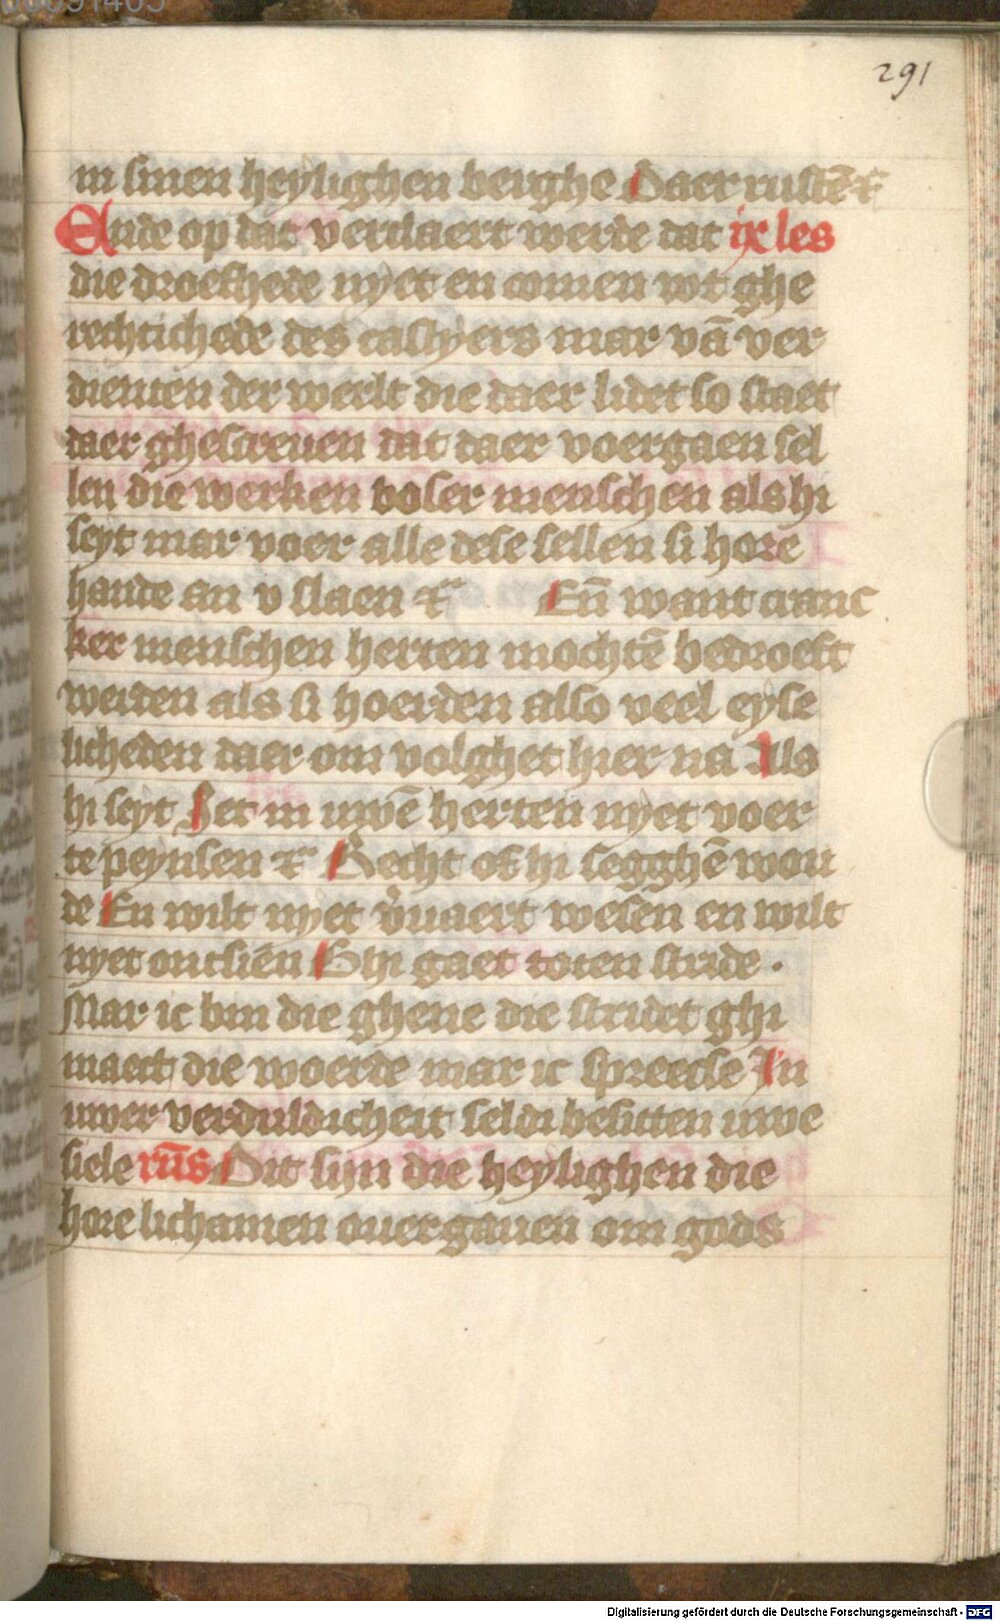 291
in sinen heylighen berghe Daer rustē ⁊c
Ande op dat verclaert werde dat ix les
die droefhede nyet en comen wt ghe
rechtichede des castyers mar vā ver
dienten der werlt die daer lidet so staet
daer ghescreuen dat daer voergaen sel
len die werken boser menschen als hi
seyt mar voer alle dese sellen si hore
hande an v slaen ⁊c Eñ want cranc
ker menschen herten mochtē bedroeft
werden als si hoerden also veel eyse
licheden daer om volghet hier na Als
hi seyt Set in uwē herten nyet voer
te peynsen ⁊c Recht of hi segghē wou
de En wilt nyet v̄uaert wesen en wilt
nyet ontsien Ghi gaet toten stride .
Mar ic bin die ghene die stridet ghi
maect die woerde mar ic spreecse In
uwer verduldicheit seldi besitten uwe
siele rūs Dit sijn die heylighen die
hore lichamen ouergauen om gods
Digitalisierung gefördert durch die Deutsche Forschungsgemeinschaft - DFG